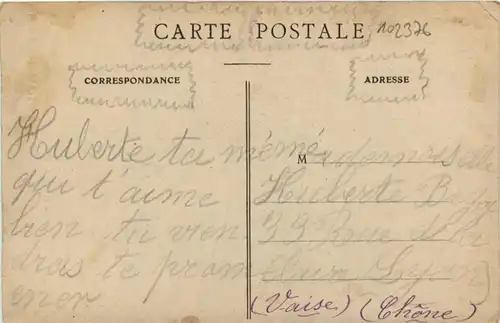 CARTE POSTALE
102376
CORRESPONDANCE
ADRESSE
Huberte ta mémé
qui t'aime
bien tu vien
dras te prom
ener
Mademoiselle
Huberte
33 Rue
Lyon
(Vaise) (Rhône)